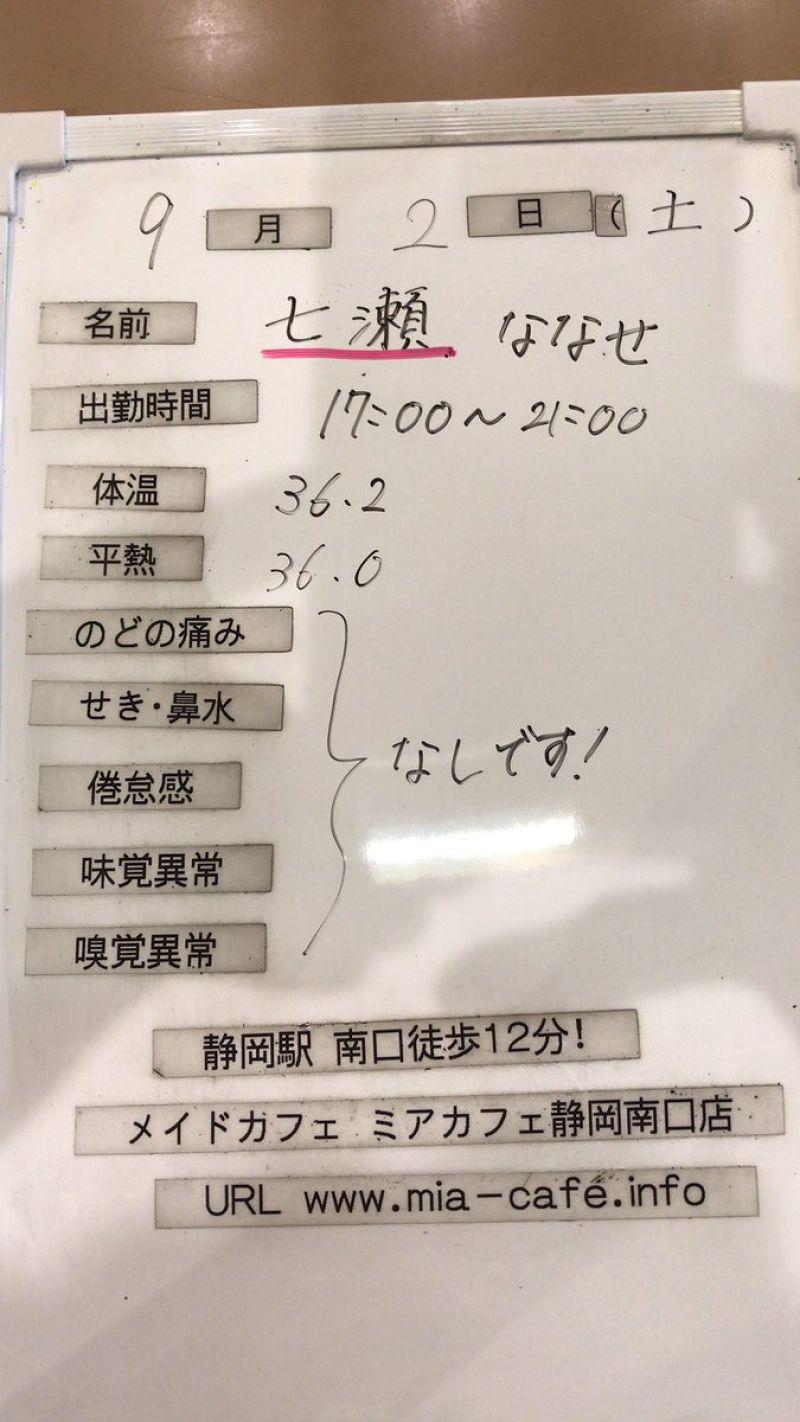 9月2日(土)
名前 七瀬 ななせ
出勤時間 17:00~21:00
体温 36.2
平熱 36.0
のどの痛み
せき・鼻水
倦怠感 なしです!
味覚異常
嗅覚異常
静岡駅 南口徒歩12分!
メイドカフェ ミアカフェ静岡南口店
URL www.mia-cafe.info